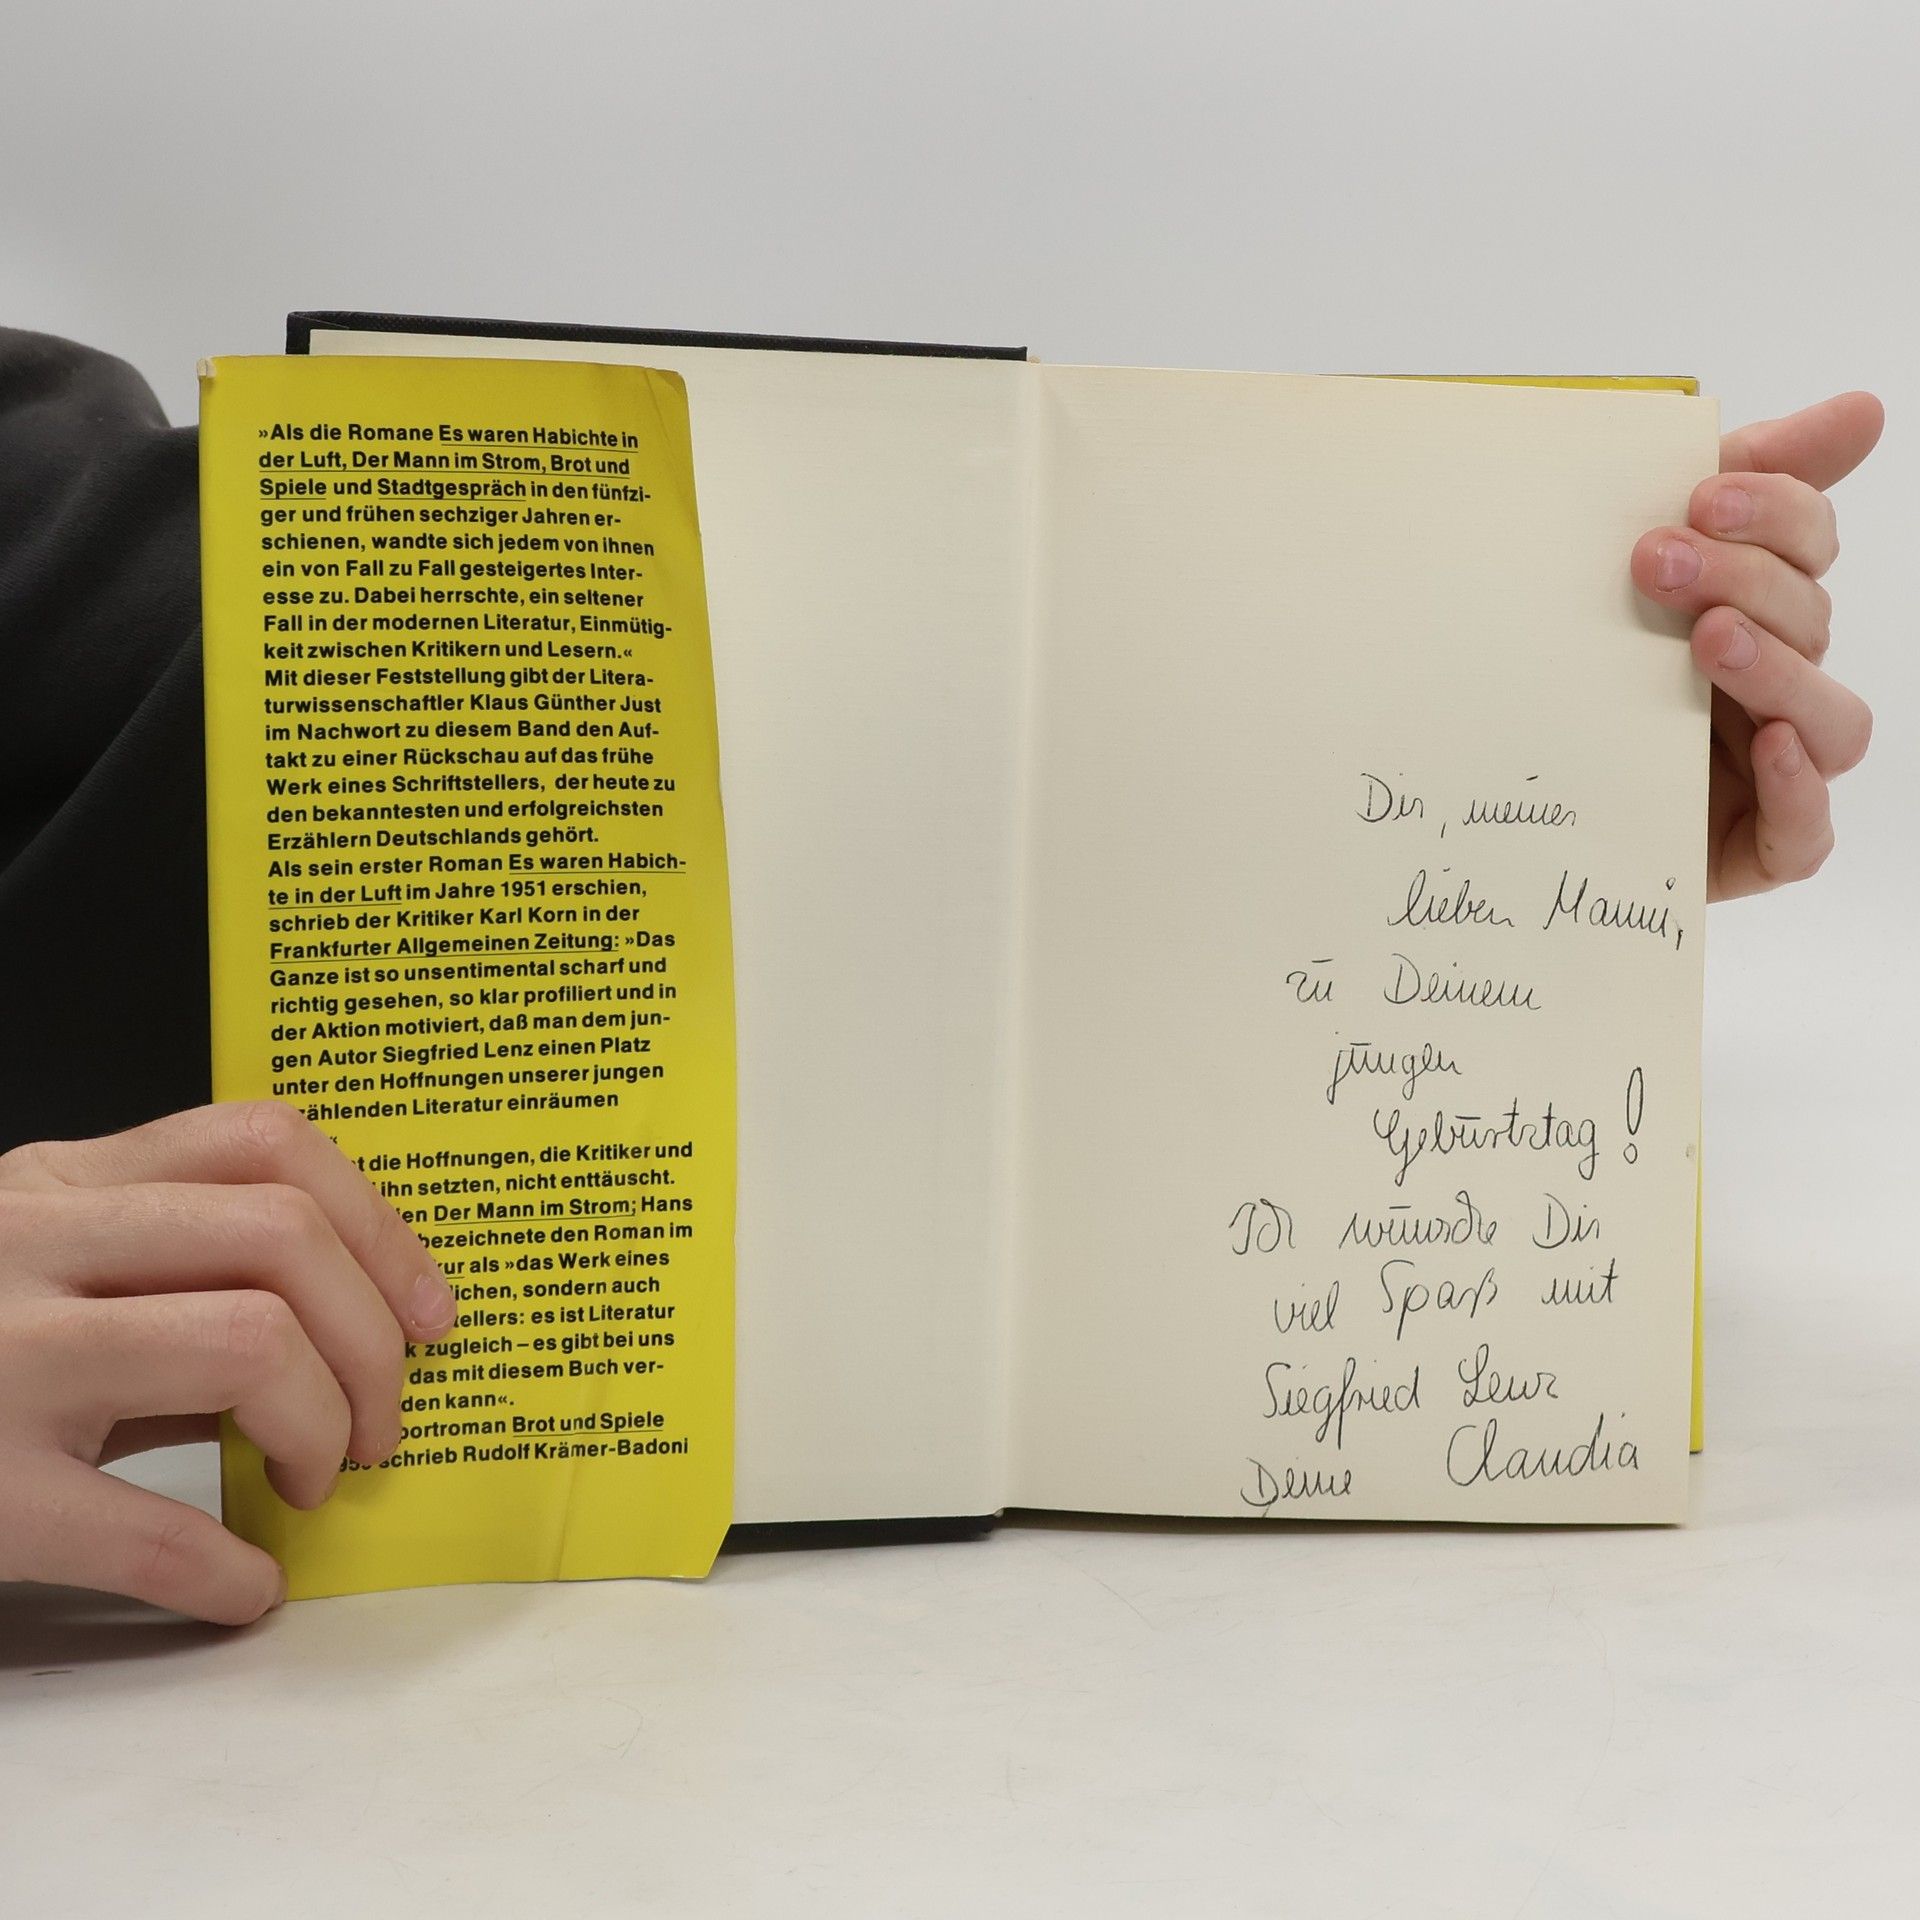 »Als die Romane Es waren Habichte in
der Luft, Der Mann im Strom, Brot und
Spiele und Stadtgespräch in den fünfzi-
ger und frühen sechziger Jahren er-
schienen, wandte sich jedem von ihnen
ein von Fall zu Fall gesteigertes Inter-
esse zu. Dabei herrschte, ein seltener
Fall in der modernen Literatur, Einmütig-
keit zwischen Kritikern und Lesern.«
Mit dieser Feststellung gibt der Litera-
turwissenschaftler Klaus Günther Just
im Nachwort zu diesem Band den Auf-
takt zu einer Rückschau auf das frühe
Werk eines Schriftstellers, der heute zu
den bekanntesten und erfolgreichsten
Erzählern Deutschlands gehört.
Als sein erster Roman Es waren Habich-
te in der Luft im Jahre 1951 erschien,
schrieb der Kritiker Karl Korn in der
Frankfurter Allgemeinen Zeitung: »Das
Ganze ist so unsentimental scharf und
richtig gesehen, so klar profiliert und in
der Aktion motiviert, daß man dem jun-
gen Autor Siegfried Lenz einen Platz
unter den Hoffnungen unserer jungen
zählenden Literatur einräumen
“
die Hoffnungen, die Kritiker und
ihn setzten, nicht enttäuscht.
Der Mann im Strom; Hans
bezeichnete den Roman im
als »das Werk eines
lichen, sondern auch
tellers: es ist Literatur
k zugleich – es gibt bei uns
das mit diesem Buch ver-
den kann«.
portroman Brot und Spiele
schrieb Rudolf Krämer-Badoni
Dir, meinem
lieben Manni,
zu Deinem
jungen
Geburtstag!
Ich wünsche Dir
viel Spaß mit
Siegfried Lenz
Deine Claudia